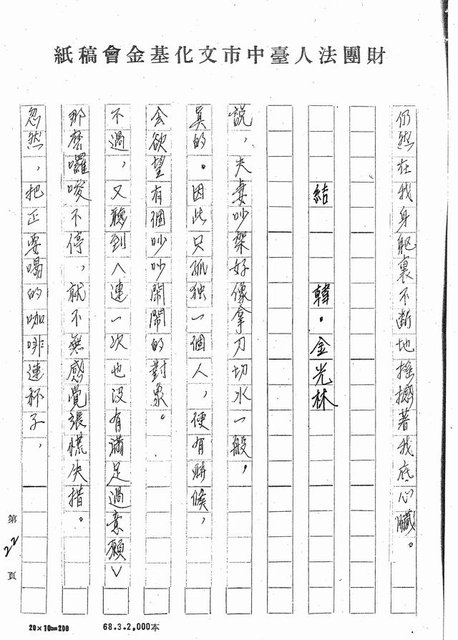 財團法人臺中市文化基金會稿紙
仍然在我身軀裏不斷地搖撼著我底心臟。
結　韓・金光林
說，夫妻吵架好像拿刀切水一般，
真的。因此只孤独一個人，便有時候，
会欲望有個吵吵鬧鬧的對象。
不過，又聽到〈連一次也沒有滿足過意願〉
那麼囉唆不停，就不無感覺張慌失措。
忽然，把正要喝的咖啡連杯子，
第22頁
20×10=200
68.3.2,000本